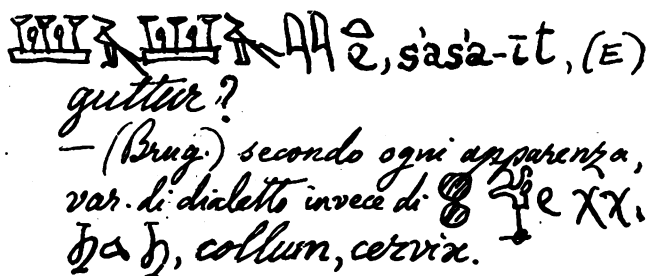 𓆷𓄿𓆷𓄿𓇋𓇋𓏏, śaśa-īt, (E)
guttur?
— (Brug.) secondo ogni apparenza,
var. di dialetto invece di χχ,
collum, cervix.